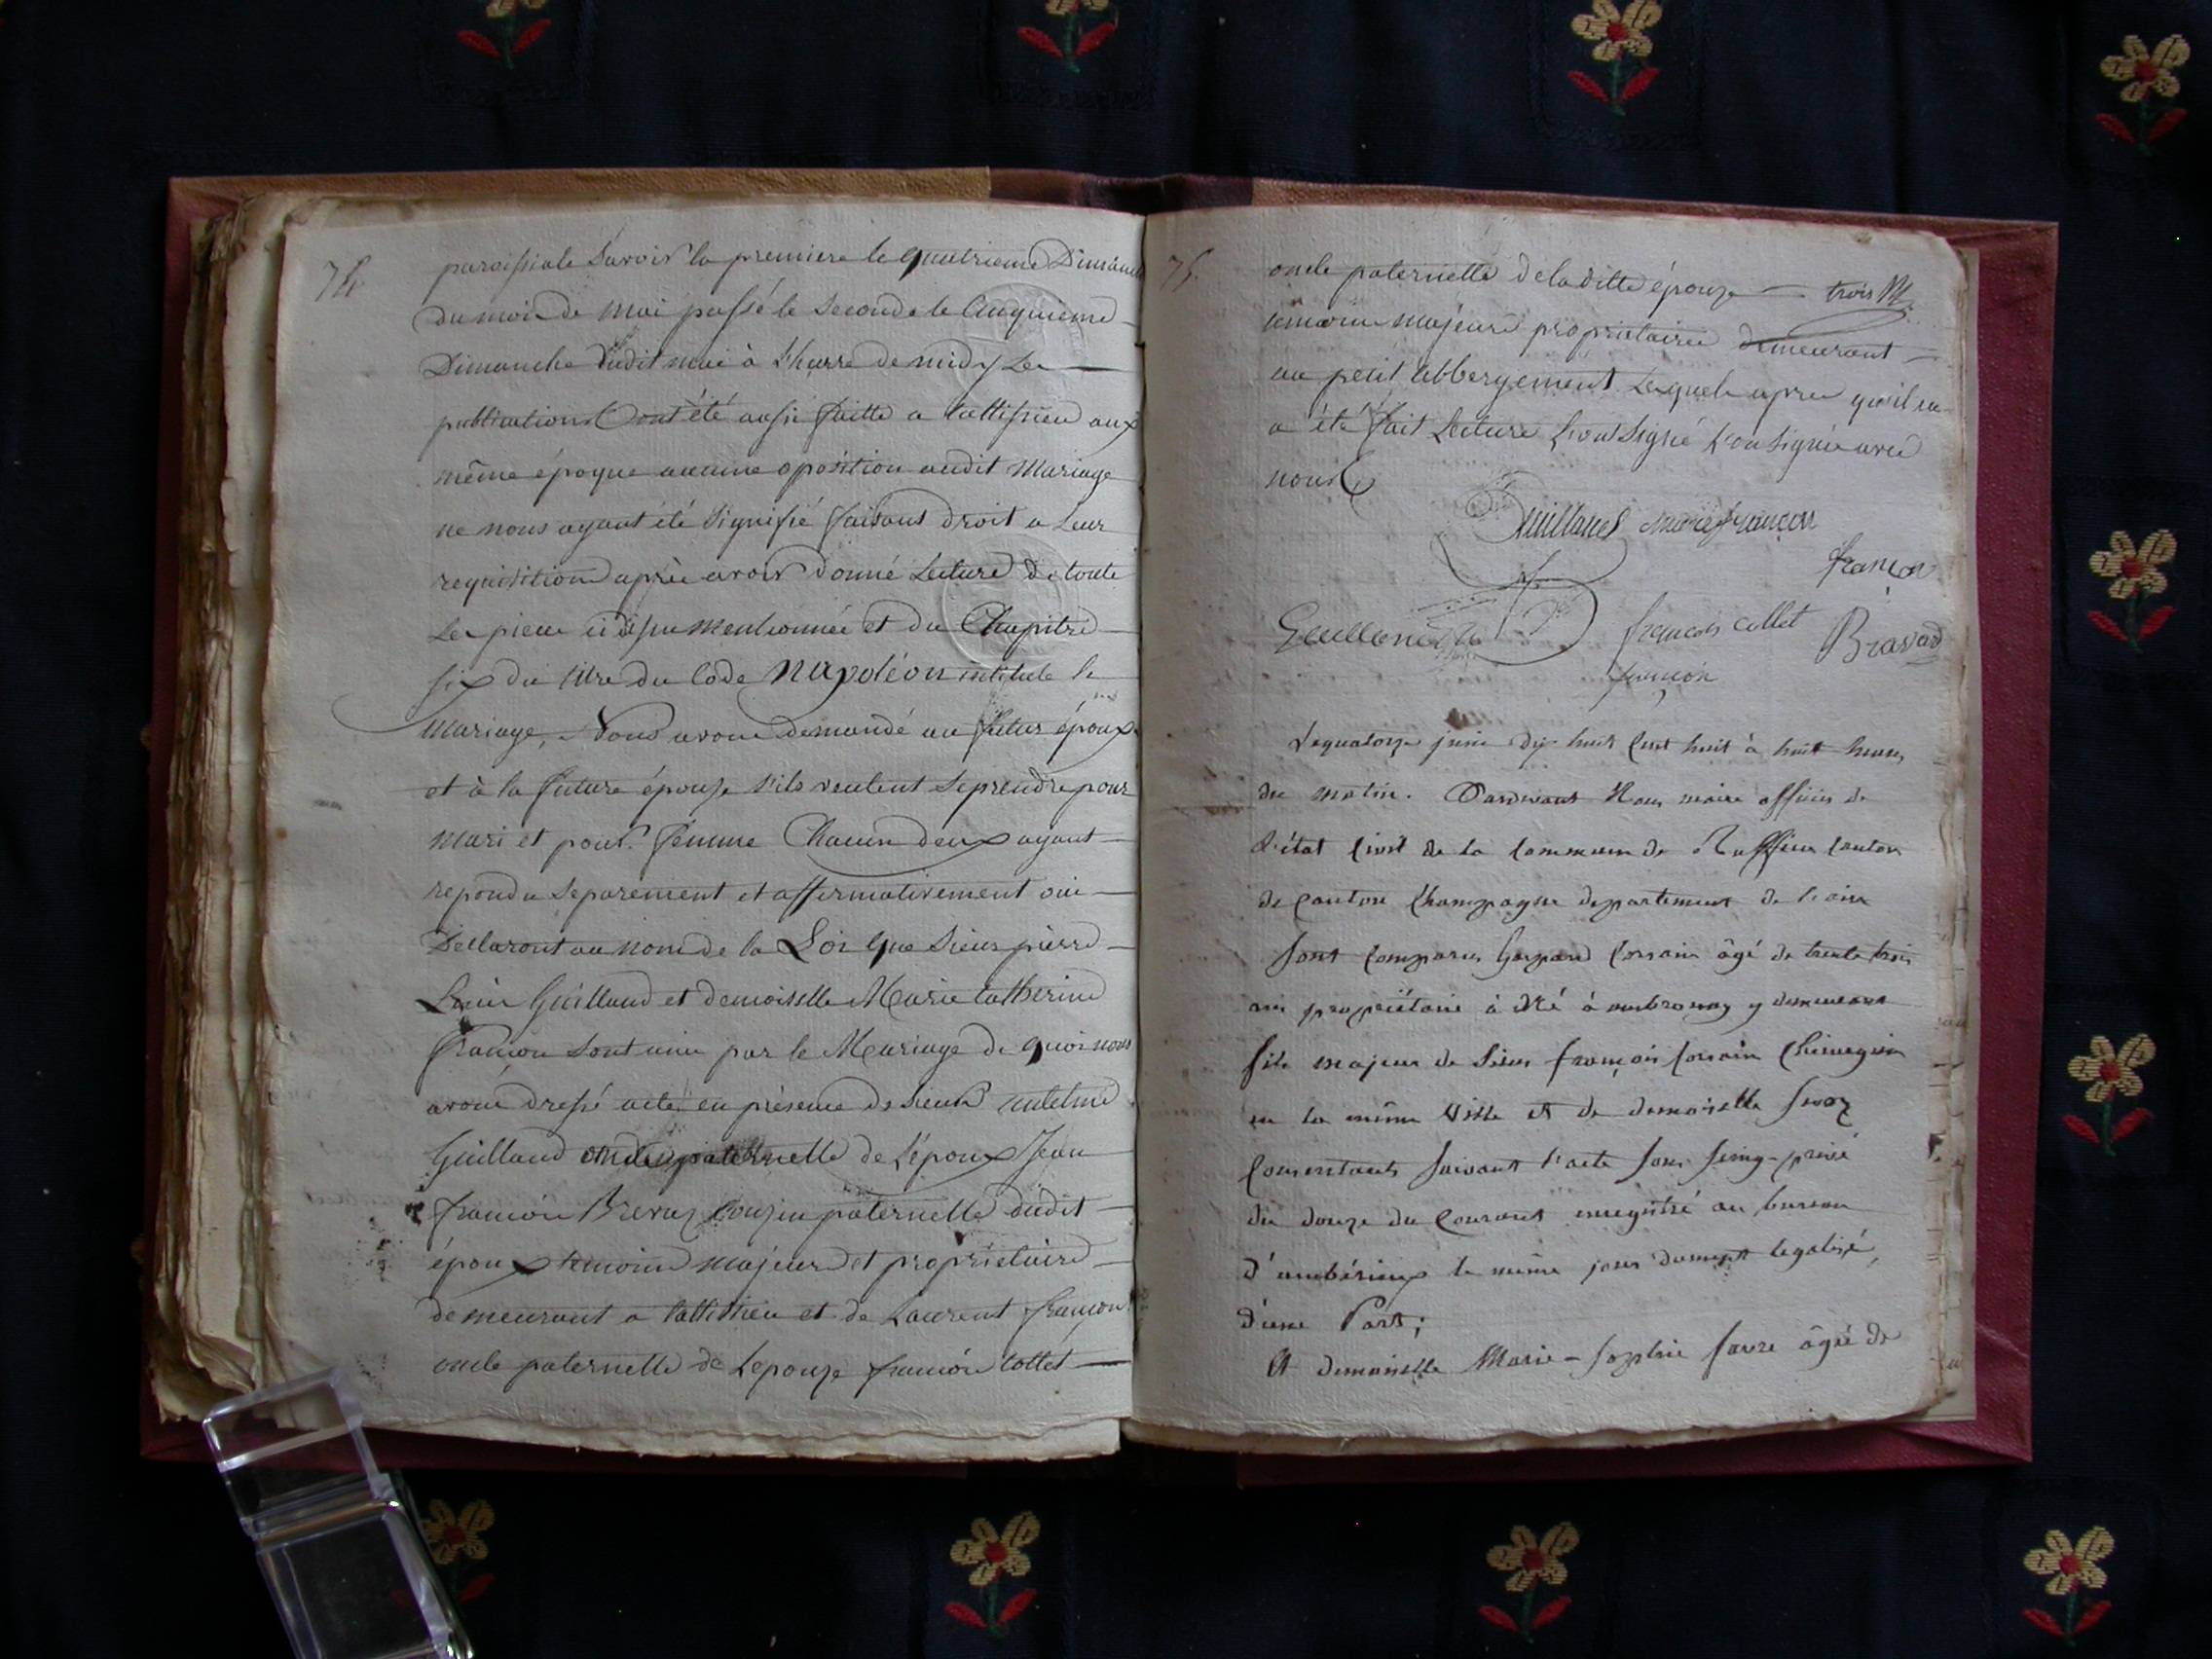 74
paroissiale Savoir la premiere le quatrieme Dimanche
du mois de mai passé le Seconde le Cinquieme
Dimanche dudit mai à l'heure de midy Les
publications ont été aussi faitte a
même époque aucune oposition audit Mariage
ne nous ayant été Signifié faisant droit a Leur
requisition après avoir donné Lecture de toute
Les piece ci dessu mentionnée et du Chapitre
six du titre du Code Napoléon intitulé le
Mariage, Nous avons demandé au futur époux
et à la future épouse s'ils veulent se prendre pour
mari et pour femme Chacun deux ayant
repondu Separement et affirmativement oui
Declaront au nom de la Loi que Sieur pierre
Louis Guilland et demoiselle Marie Catherine
françon Sont unis par le Mariage de quoi nous
avons dressé acte, en présence de Sieur antelme
Guilland oncle paternelle de L'époux Jean
françoi couzin paternelle dudit
époux temoins majeurs et proprietaire
demeurant a et de Laurent françon
oncle paternelle de Lepouze françoi Collet
75.
oncle paternelle de la ditte épouze trois
temoins majeurs proprietaires demeurant
au petit abbergement Lequels apres qu'il en
a été fait Lecture signé avec
nous
Guilland marie françon
françon
Guilland françois collet Bravard
françon
Le quatorze juin dix huit cent huit à huit heures
du matin. Pardevant Nous maire officier de
l'état civil de la commune de Ruffieu canton
de canton Champagne departement de l'ain
Sont comparus Gaspard âgé de trente trois
ans propriétaire à Né à ambronay y demeurant
fils majeur de Sieur françois Chirurgien
en la même ville et de demoiselle
consentants suivant l'acte sous seing-privé
du douze du courant enregistré au bureau
d'ambérieux le même jour dument legalisé,
d'une Part;
Et demoiselle Marie-Sophie favre âgée de